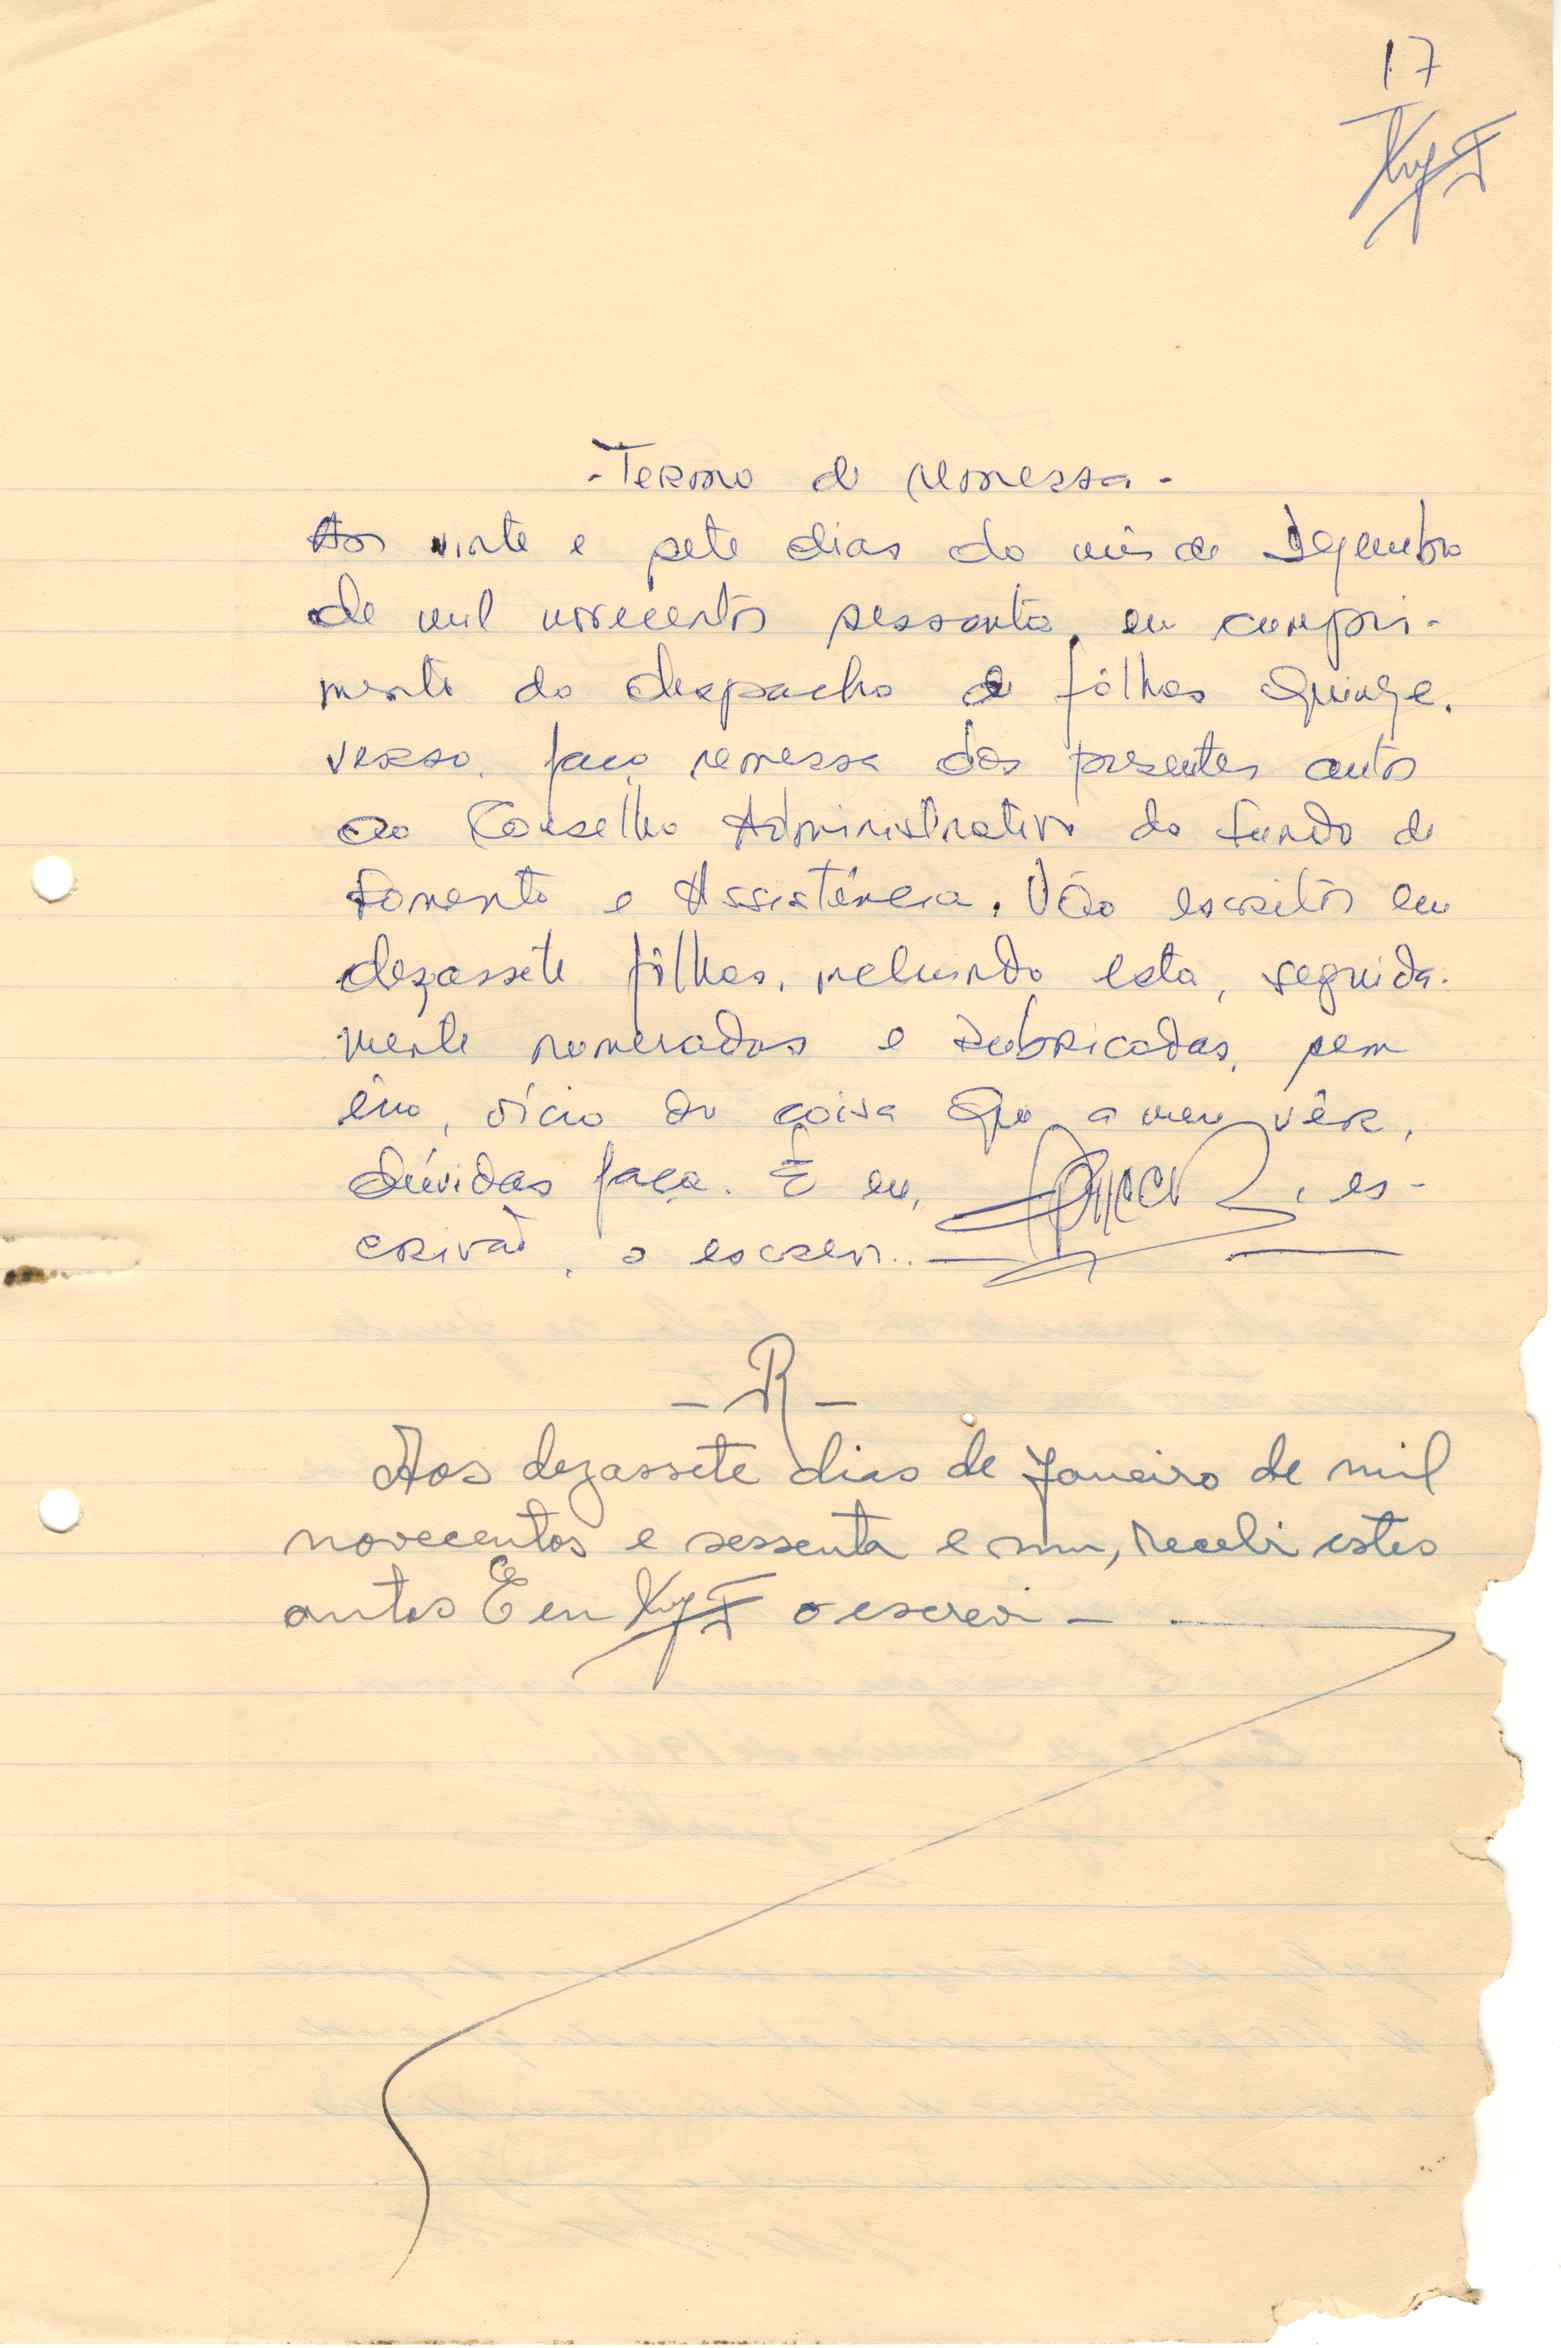 17
- Termo de remessa -
Aos vinte e sete dias do mês de Dezembro
de mil novecentos sessenta, em cumpri-
mento do despacho de fôlhas quinze,
verso, faço remessa dos presentes autos
ao Conselho Administrativo do Fundo de
Fomento e Assistência. Vão escritos em
dezassete fôlhas, incluindo esta, seguida-
mente numeradas e rubricadas, sem
êrro, vício ou coisa que a meu vêr,
dúvidas faça. E eu, , es-
crivão, o escrevi.
- R -
Aos dezassete dias de Janeiro de mil
novecentos e sessenta e um, recebi estes
autos E eu o escrevi -